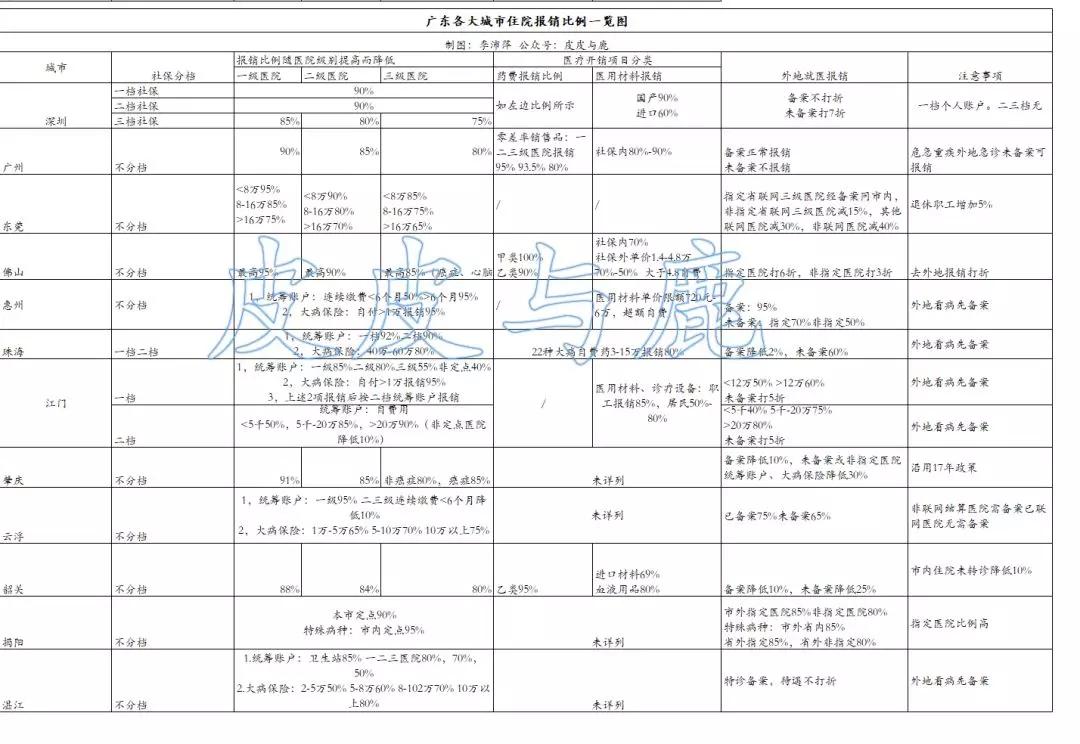 广东各大城市住院报销比例一览图
制图：李沛萍 公众号：皮皮与鹿
城市
社保分档
报销比例随医院级别提高而降低
医疗开销项目分类
外地就医报销
注意事项
一级医院
二级医院
三级医院
药费报销比例
医用材料报销
深圳
一档社保
90%
二档社保
90%
三档社保
85%
80%
75%
如左边比例所示
国产90%
进口60%
备案不打折
未备案打7折
一档个人账户。二三档无
广州
不分档
90%
85%
80%
零差率销售品：一
二三级医院报销
95% 93.5% 80%
社保内80%-90%
备案正常报销
未备案不报销
危急重疾外地急诊未备案可
报销
东莞
不分档
<8万95%
8-16万85%
>16万75%
<8万90%
8-16万80%
>16万70%
<8万85%
8-16万75%
>16万65%
/
/
指定省联网三级医院经备案同市内，
非指定省联网三级医院减15%，其他
联网医院减30%，非联网医院减40%
退休职工增加5%
佛山
不分档
最高95%
最高90%
最高85%（癌症、心脑
甲类100%
乙类90%
社保内70%
社保外单价1.4-4.8万
70%-50% 大于4.8自费
指定医院打6折，非指定医院打3折
去外地报销打折
惠州
不分档
1，统筹账户：连续缴费<6个月50%>6个月95%
2，大病保险：自付>1万报销95%
/
医用材料单价限额720元-
6万，超额自费
备案：95%
未备案：指定70%非指定50%
外地看病先备案
珠海
一档二档
1，统筹账户：一档92%二档90%
2，大病保险：40万-60万80%
22种大病自费药3-15万报销80%
备案降低2%，未备案60%
外地看病先备案
江门
一档
1，统筹账户：一级85%二级80%三级55%非定点40%
2，大病保险：自付>1万报销95%
3，上述2项报销后按二档统筹账户报销
/
医用材料、诊疗设备：职
工报销85%，居民50%-
80%
<12万50% >12万60%
未备案打5折
外地看病先备案
二档
统筹账户：自费用
<5千50%，5千-20万85%，>20万90%（非定点医院
降低10%）
<5千40% 5千-20万75%
>20万80%
未备案打5折
外地看病先备案
肇庆
不分档
91%
85%
非癌症80%，癌症85%
未详列
备案降低10%，未备案或非指定医院
统筹账户、大病保险降低30%
沿用17年政策
云浮
不分档
1，统筹账户：一级95% 二三级连续缴费<6个月降
低10%
2，大病保险：1万-5万65% 5-10万70% 10万以上75%
未详列
已备案75%未备案65%
非联网结算医院需备案已联
网医院无需备案
韶关
不分档
88%
84%
80%
乙类95%
进口材料69%
血液用品80%
备案降低10%，未备案降低25%
市内住院未转诊降低10%
揭阳
不分档
本市定点90%
特殊病种：市内定点95%
未详列
市外指定医院85%非指定医院80%
特殊病种：市外省内85%
省外指定85%，省外非指定80%
指定医院比例高
湛江
不分档
1.统筹账户：卫生站85% 一二三医院80%，70%，
50%
2.大病保险：2-5万50% 5-8万60% 8-102万70% 10万以
上80%
未详列
特诊备案，待遇不打折
外地看病先备案
皮皮与鹿